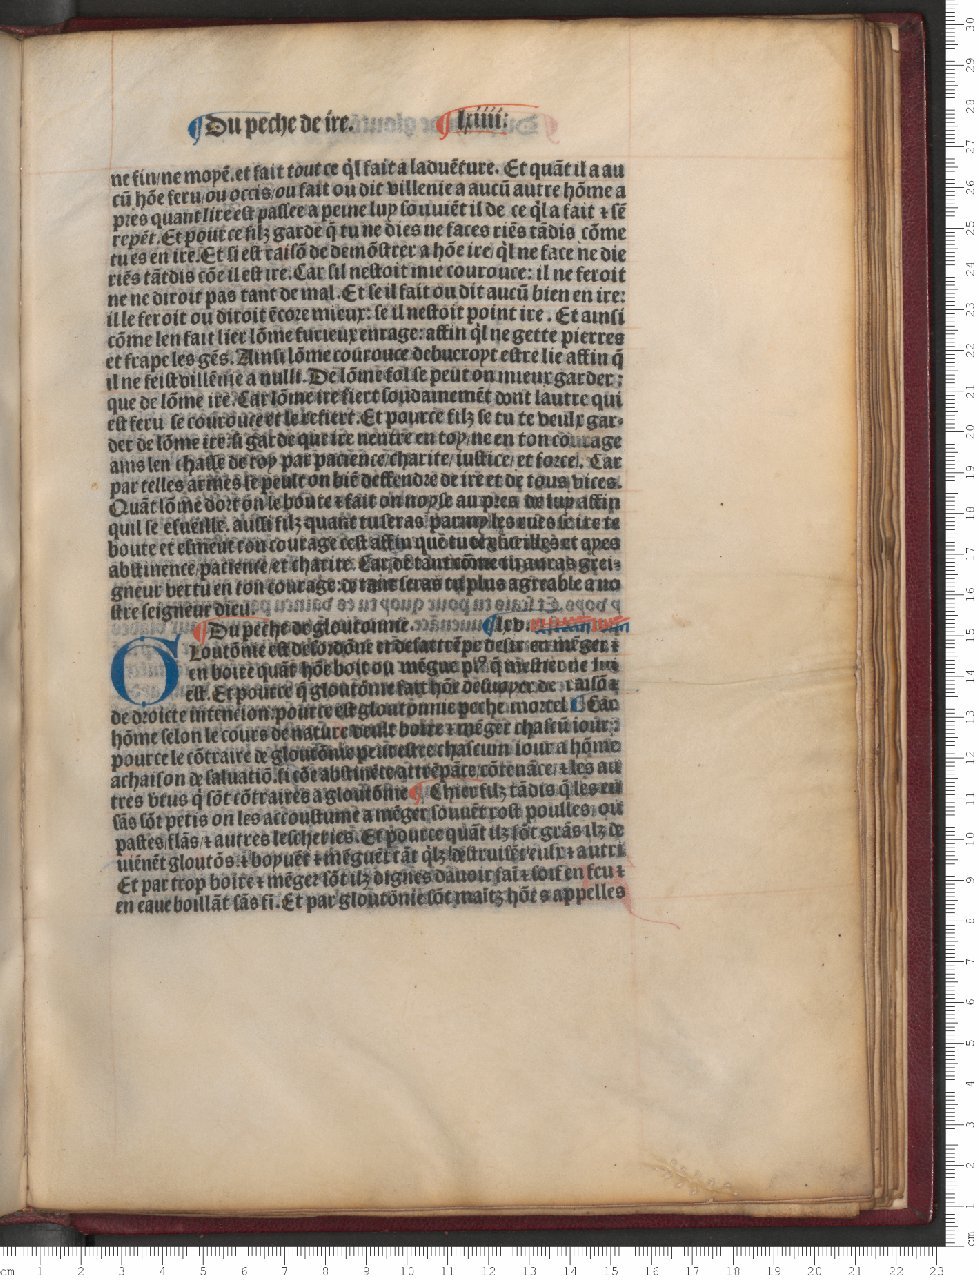 ¶Du peche de ire. ¶lxiiii.
ne fin/ne moyẽ.et fait tout ce q̃l fait a laduẽture. Et quãt il a au
cũ hõe feru/ou occis/ou fait ou dit villenie a aucũ autre hõme a
pres quant lire est passee a peine luy souuiẽt il de ce q̃l a fait ⁊ sẽ
repẽt. Et pour ce filz garde q̃ tu ne dies ne faces riẽs tãdis cõme
tu es en ire. Et si est raisõ de demõstrer a hõe ire q̃l ne face ne die
riẽs tãtdis cõe il est ire. Car sil nestoit mie courouce: il ne feroit
ne ne diroit pas tant de mal. Et se il fait ou dit aucũ bien en ire:
il le feroit ou diroit ẽcore mieux: se il nestoit point ire. Et ainsi
cõme len fait lier lõme furieux enrage: affin q̃l ne gette pierres
et frape les gẽs. Ainsi lõme courouce debueroyt estre lie affin q̃
il ne feist villẽnie a nulli. De lõme fol se peut on mieux garder:
que de lõme ire. Car lõme ire fiert soudainemẽt dont lautre qui
est feru se courouce et le refiert. Et pource filz se tu te veulx gar-
der de lõme ire: si garde que ire nentre en toy/ne en ton courage
ains len chasse de toy par pacience/charite/iustice/et force. Car
par telles armes se peult on biẽ deffendre de ire et de tous vices.
Quãt lõme dort on le boute ⁊ fait on noyse au pres de luy affin
quil se esueille. aussi filz quant tu seras parmy les rues se ire te
boute et esmeut ton courage cest affin que tu te esueilles et ayes
abstinence/pacience/et charite. Car de tant cõme tu auras grei-
gneur vertu en ton courage: de tant seras tu plus agreable a no
stre seigneur dieu.
¶Du peche de gloutonnie. ¶lxv.
GLoutõnie est desordõne et desattrẽpe desir en mẽger ⁊
en boire quãt hõe boit ou mẽgue pl9 q̃ mestier ne lui
est. Et pource q̃ gloutõnie fait hõe desuoyer de raisõ ⁊
de droicte intencion: pour ce est gloutonnie peche mortel ¶Car
hõme selon le cours de nature veult boire ⁊ mẽger chascũ iour:
pour ce le cõtraire de gloutõnie peut estre chascun iour a hõme
achaison de saluatiõ. si cõe abstinẽce attrẽpãce cõtenãce. ⁊ les au
tres vtus q̃ sõt cõtraires a gloutõnie ¶ Chier filz tãdis q̃ les en
fãs sõt petis on les accoustume a mẽger souuẽt rost poulles: ou
pastes flãs ⁊ autres lescheries. Et pource quãt ilz sõt grãs ilz de
uiẽnẽt gloutõs. ⁊ boyuẽt ⁊ mẽguẽt tãt q̃lz destruisẽt eulx ⁊ autri
Et par trop boire ⁊ mẽger sõt ilz dignes dauoir fai ⁊ soif en feu ⁊
en eaue boillãt sãs fi. Et par gloutõnie sõt maitz hõe s appelles